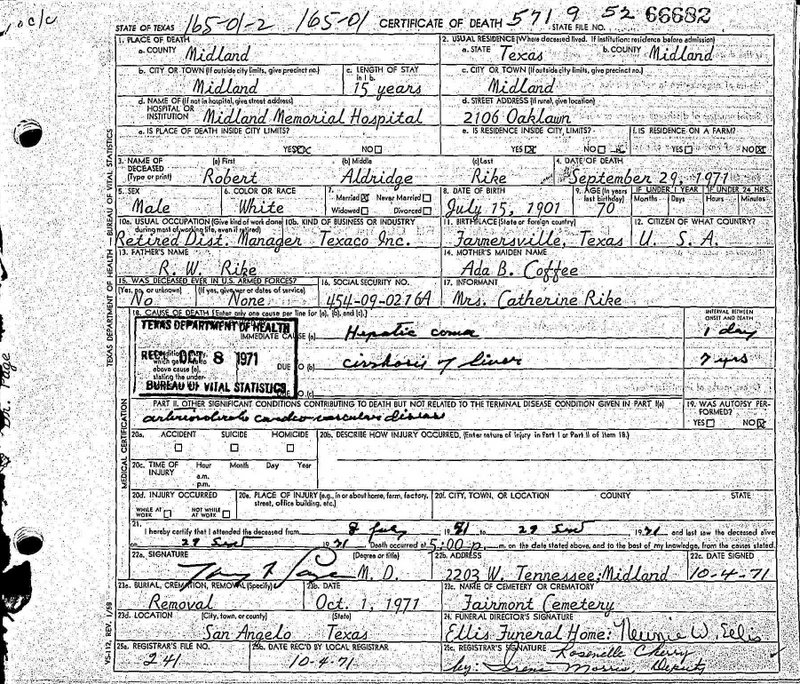 c/c
165-01-2 165-01 571 9 52 66682
STATE OF TEXAS CERTIFICATE OF DEATH STATE FILE NO.
1. PLACE OF DEATH
a. COUNTY Midland
2. USUAL RESIDENCE (Where deceased lived. If institution: residence before admission)
a. STATE Texas b. COUNTY Midland
b. CITY OR TOWN (If outside city limits, give precinct no.) Midland
c. LENGTH OF STAY in 1 b. 15 years
c. CITY OR TOWN (If outside city limits, give precinct no.) Midland
d. NAME OF (If not in hospital, give street address) HOSPITAL OR INSTITUTION Midland Memorial Hospital
d. STREET ADDRESS (If rural, give location) 2106 Oaklawn
e. IS PLACE OF DEATH INSIDE CITY LIMITS? YES☒ NO☐
e. IS RESIDENCE INSIDE CITY LIMITS? YES☒ NO☐
f. IS RESIDENCE ON A FARM? YES☐ NO☒
3. NAME OF DECEASED (Type or print) (a) First Robert (b) Middle Aldridge (c) Last Rike
4. DATE OF DEATH September 29, 1971
5. SEX Male
6. COLOR OR RACE White
7. Married☒ Never Married☐ Widowed☐ Divorced☐
8. DATE OF BIRTH July 15, 1901
9. AGE (In years last birthday) 70
IF UNDER 1 YEAR Months Days
IF UNDER 24 HRS. Hours Minutes
10a. USUAL OCCUPATION (Give kind of work done during most of working life, even if retired) Retired Dist. Manager
10b. KIND OF BUSINESS OR INDUSTRY Texaco Inc.
11. BIRTHPLACE (State or foreign country) Farmersville, Texas
12. CITIZEN OF WHAT COUNTRY? U. S. A.
13. FATHER'S NAME R. W. Rike
14. MOTHER'S MAIDEN NAME Ada B. Coffee
15. WAS DECEASED EVER IN U.S. ARMED FORCES?
(Yes, no, or unknown) No (If yes, give war or dates of service) None
16. SOCIAL SECURITY NO. 454-09-0216A
17. INFORMANT Mrs. Catherine Rike
18. CAUSE OF DEATH [Enter only one cause per line for (a), (b), and (c).]
INTERVAL BETWEEN ONSET AND DEATH
IMMEDIATE CAUSE (a) Hepatic coma 1 day
DUE (b) cirrhosis of liver 7 yrs
above cause (a), stating the under-
DUE (c)
TEXAS DEPARTMENT OF HEALTH
REC'D OCT 8 1971
BUREAU OF VITAL STATISTICS
PART II. OTHER SIGNIFICANT CONDITIONS CONTRIBUTING TO DEATH BUT NOT RELATED TO THE TERMINAL DISEASE CONDITION GIVEN IN PART I(a)
19. WAS AUTOPSY PERFORMED? YES☐ NO☒
20a. ACCIDENT ☐ SUICIDE ☐ HOMICIDE ☐
20b. DESCRIBE HOW INJURY OCCURRED. (Enter nature of injury in Part I or Part II of item 18.)
20c. TIME OF INJURY Hour Month Day Year
a.m.
p.m.
20d. INJURY OCCURRED WHILE AT WORK ☐ NOT WHILE AT WORK ☐
20e. PLACE OF INJURY (e.g., in or about home, farm, factory, street, office building, etc.)
20f. CITY, TOWN, OR LOCATION COUNTY STATE
21. I hereby certify that I attended the deceased from 8 July to 29 1971 and last saw the deceased alive
on 29 1971 Death occurred at 5:00 p m. on the date stated above, and to the best of my knowledge, from the causes stated.
22a. SIGNATURE (Degree or title) M. D.
22b. ADDRESS 2203 W. Tennessee: Midland
22c. DATE SIGNED 10-4-71
23a. BURIAL, CREMATION, REMOVAL (Specify) Removal
23b. DATE Oct. 1, 1971
23c. NAME OF CEMETERY OR CREMATORY Fairmont Cemetery
23d. LOCATION (City, town, or county) San Angelo (State) Texas
24. FUNERAL DIRECTOR'S SIGNATURE Ellis Funeral Home: W. Ellis
25a. REGISTRAR'S FILE NO. 241
25b. DATE REC'D BY LOCAL REGISTRAR 10-4-71
25c. REGISTRAR'S SIGNATURE Rosenelle Cherry
by: Irene Morris, Deputy
TEXAS DEPARTMENT OF HEALTH — BUREAU OF VITAL STATISTICS
MEDICAL CERTIFICATION
VS-112, REV. 1/58
Dr. Page